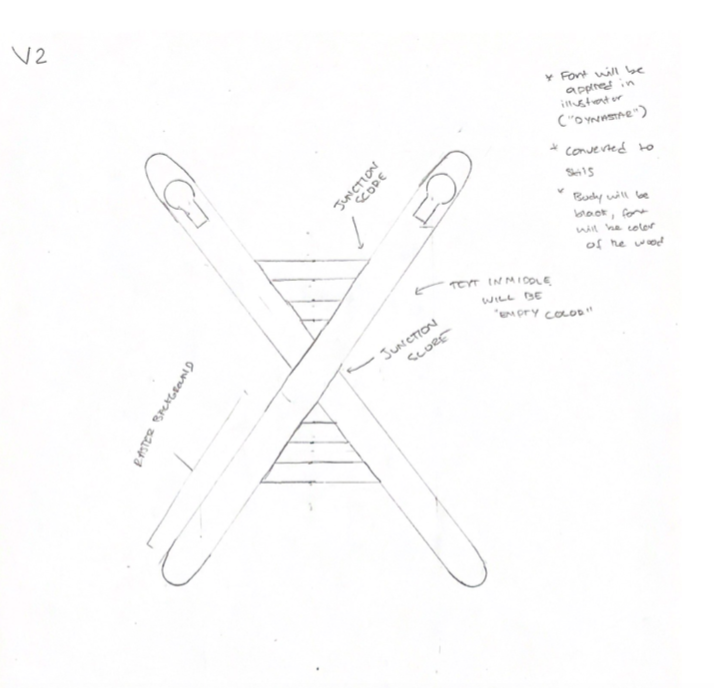 V2
* Font will be
applied in
illustrator
("DYNASTAR")
* converted to
skis
* Body will be
black, font
will be color
of the wood
JUNCTION
SCORE
TEXT IN MIDDLE
WILL BE
"EMPTY COLOR"
JUNCTION
SCORE
RASTER BACKGROUND